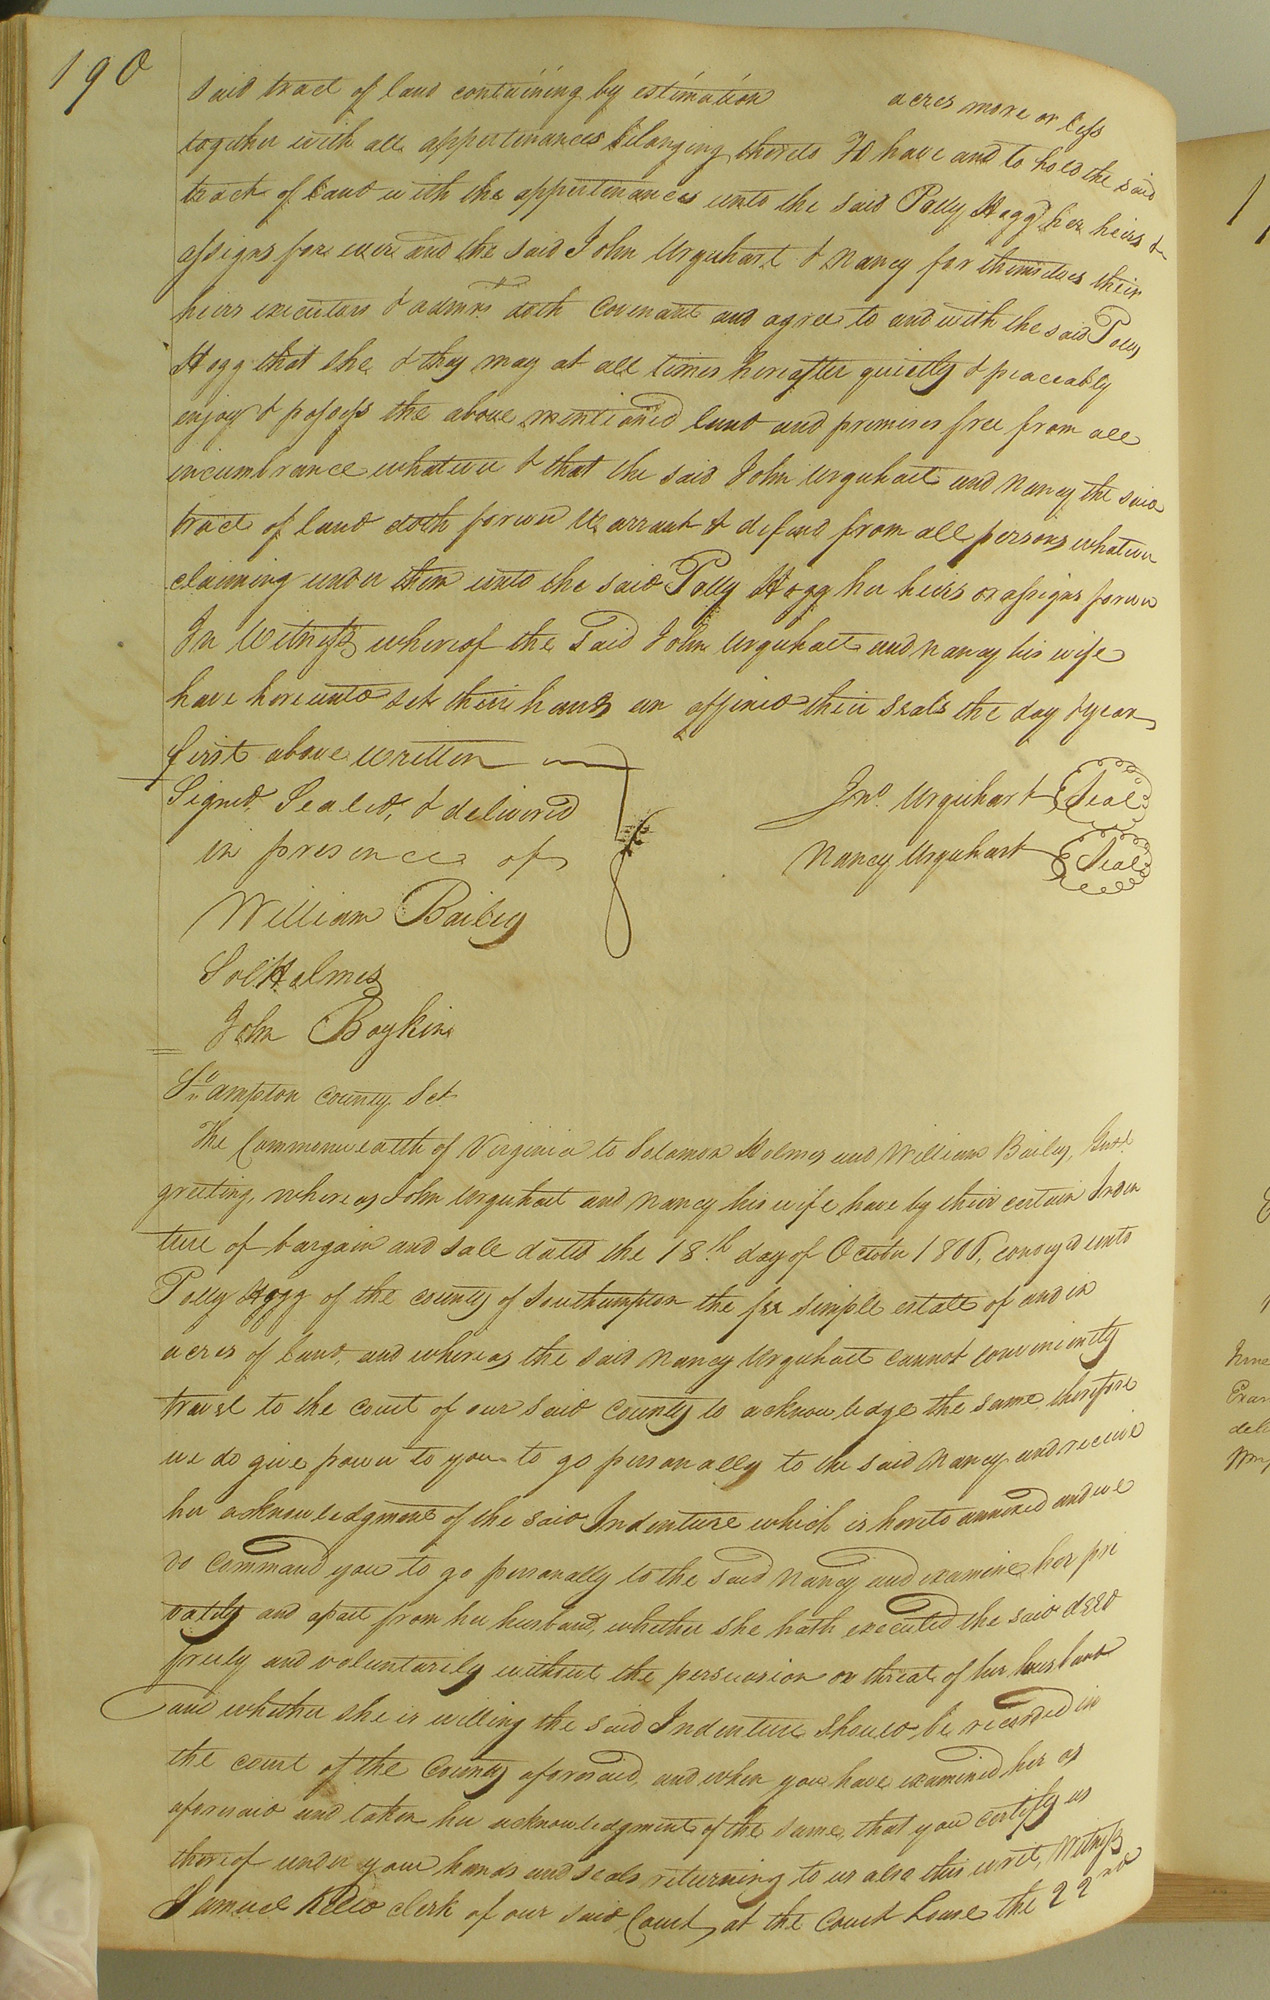 190
said tract of land containing by estimation acres more or less
together with all appertenances belonging thereto To have and to hold the said
tract of land with the appertenances unto the said Polly Hogg her heirs &
assigns for ever and the said John Urquhart & Nancy for themselves their
heirs executors & admrs doth covenant and agree to and with the said Polly
Hogg that she & they may at all times hereafter quietly & peaceably
enjoy & possess the above mentioned land and premises free from all
incumbrance whatever & that the said John Urquhart and Nancy the said
tract of land doth forever Warrant & defend from all persons whatever
claiming under them unto the said Polly Hogg her heirs or assigns forever
In Witness whereof the said John Urquhart and Nancy his wife
have hereunto set their hands an affixed their seals the day & year
first above written
Signed, Sealed, & delivered
in presence of
Jno. Urquhart Seal
Nancy Urquhart Seal
William Bailey
Sol Holmes
John Boykin
So.ampton County Sct
The Commonwealth of Virginia to Solomon Holmes and William Bailey, Gent.
greeting, whereas John Urquhart and Nancy his wife have by their certain Inden
ture of bargain and sale dated the 18th day of October 1806, conveyed unto
Polly Hogg of the county of Southampton the fee simple estate of and in
acres of land, and whereas the said Nancy Urquhart cannot conveniently
travel to the court of our said county to acknowledge the same therefore
we do give power to you to go personally to the said Nancy and receive
her acknowledgment of the said Indenture which is hereto annexed and we
do command you to go personally to the said Nancy and examine her pri
vately and apart from her husband, whether she hath executed the said deed
freely and voluntarily without the persuasion or threat of her husband
and whether she is willing the said Indenture should be recorded in
the court of the County aforesaid, and when you have examined her as
aforesaid and taken her acknowledgment of the same, that you certify us
thereof under your hands and seals returning to us also this writ, Witness
Samuel Kello clerk of our said Court, at the Court house the 22nd